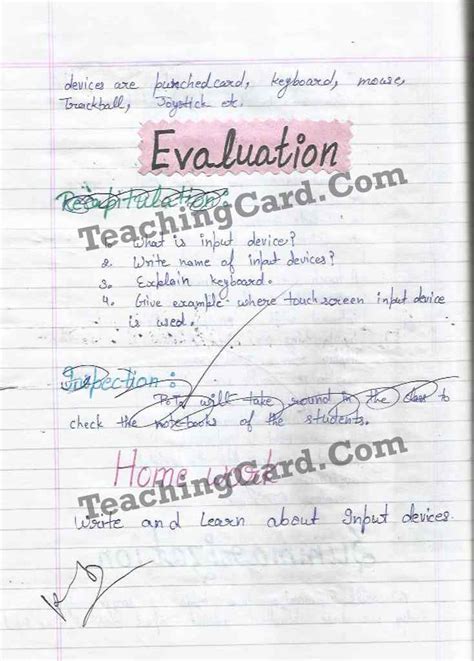 devices are punchedcard, keyboard, mouse,
Trackball, Joystick etc.
Evaluation
Recapitulation:
TeachingCard.Com
1. What is input device?
2. Write name of input devices?
3. Explain keyboard.
4. Give example where touch screen input device
is used.
Inspection:
P.T. will take round in the class to
check the notebooks of the students.
Home work
TeachingCard.Com
Write and Learn about Input devices.